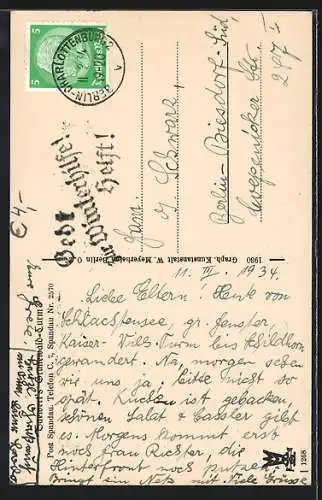 5
BERLIN-CHARLOTTENBURG 2
Gebt
zur Winterhilfe!
Helft!
€ 4,-
Fam.
v. Schwarz,
Berlin-Biesdorf-Süd,
Cöpenicker Str.
297
1930 Graph. Kunstanstalt W. Meyerheim, Berlin O.
Post Spandau. Telefon C. 7, Spandau Nr. 2570
11. III. 1934.
Liebe Eltern! Heute von
Schlachtensee, gr. Fenster,
Kaiser-Wilh. Turm bis Schildhorn
gewandert. Na, morgen sehen
wir uns ja, bitte nicht so
spät. Kuchen ist gebacken,
schönen Salat & Cassler gibt
es. Morgens kommt erst
noch Frau Richter, die
Hinterfront noch putzen.
Bringt ein Netz mit. Viele Grüsse
A 1268